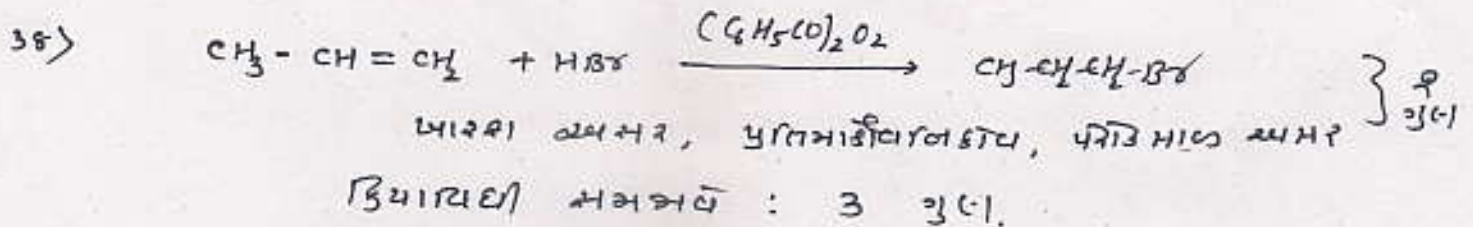 38> CH3 - CH = CH2 + HBr (C6H5CO)2O2 → CH3-CH2-CH2-Br } ૧ ગુણ
ખારાશ અસર, પ્રતિમાર્કોવનિકોવ, પેરોક્સાઇડ અસર
ક્રિયાવિધી સમજાવે : 3 ગુણ.